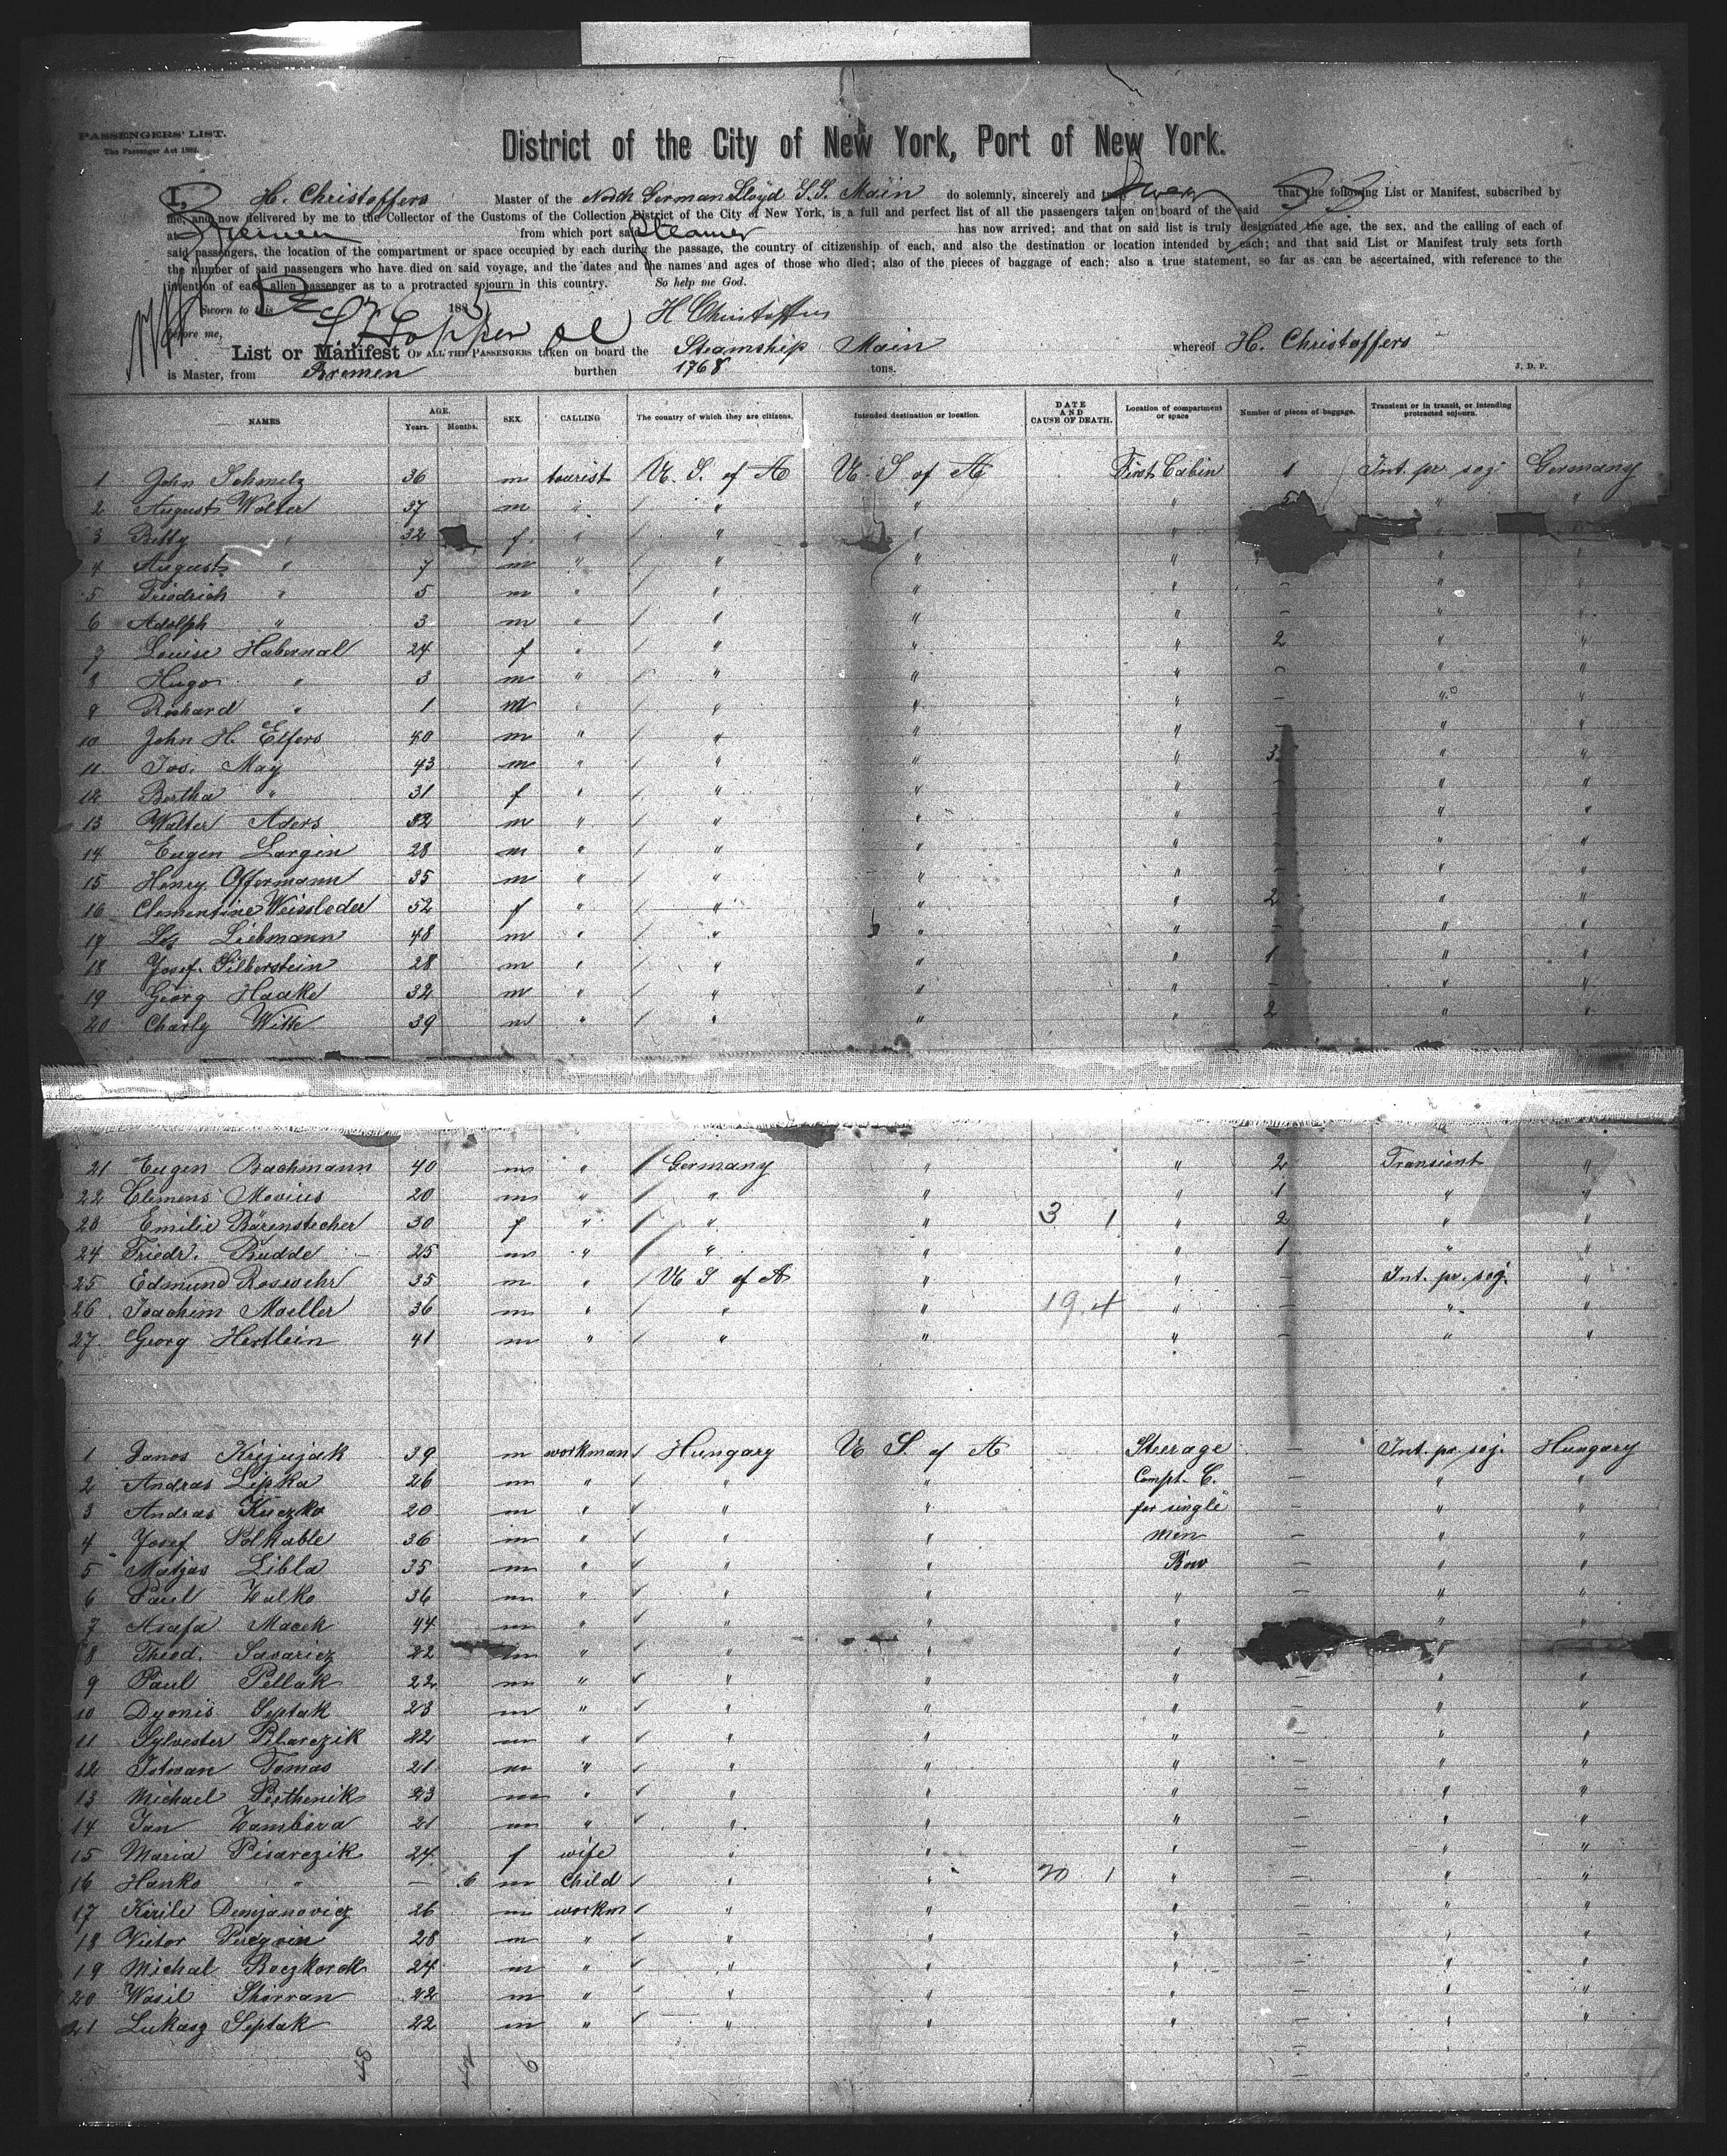 PASSENGERS' LIST.
The Passenger Act 1882.
District of the City of New York, Port of New York.
I, H. Christoffers Master of the North German Lloyd S.S. Main do solemnly, sincerely and truly swear that the following List or Manifest, subscribed by
me, and now delivered by me to the Collector of the Customs of the Collection District of the City of New York, is a full and perfect list of all the passengers taken on board of the said
at Bremen from which port said Steamer has now arrived; and that on said list is truly designated the age, the sex, and the calling of each of
said passengers, the location of the compartment or space occupied by each during the passage, the country of citizenship of each, and also the destination or location intended by each; and that said List or Manifest truly sets forth
the number of said passengers who have died on said voyage, and the dates and the names and ages of those who died; also of the pieces of baggage of each; also a true statement, so far as can be ascertained, with reference to the
intention of each alien passenger as to a protracted sojourn in this country. So help me God.
Sworn to this 1885 H Christoffers
before me,
List or Manifest OF ALL THE PASSENGERS taken on board the Steamship Main whereof H. Christoffers
is Master, from Bremen burthen 1768 tons. J. D. P.
NAMES AGE. Years. Months. SEX. CALLING The country of which they are citizens. Intended destination or location. DATE AND CAUSE OF DEATH. Location of compartment or space Number of pieces of baggage. Transient or in transit, or intending protracted sojourn.
1 John Schmelz 36 m tourist U. S. of A U. S of A First Cabin 1 Int. pr. soj Germany
2 August Wolter 37 m " " " " 5 " "
3 Betty " 32 f. " " " "
4 August " 7 m " " " " " "
5 Friedrich " 5 m " " " " - " "
6 Adolph " 3 m " " " " - " "
7 Louise Habernal 24 f " " " " 2 " "
8 Hugo " 3 m " " " " - " "
9 Richard " 1 m " " " " - " "
10 John H. Elfers 40 m " " " " - " "
11 Jos. May 43 m " " " " 3 " "
12 Bertha " 31 f " " " " - " "
13 Walter Aders 32 m " " " " - " "
14 Eugen Largin 28 m " " " " - " "
15 Henry Offermann 35 m " " " " - " "
16 Clementine Weissleder 52 f " " " " 2 " "
17 Liebmann 48 m " " " " - " "
18 Josef Silberstein 28 m " " " " 1 " "
19 Georg Haake 32 m " " " " - " "
20 Charly Witte 39 m " " " " 2 " "
21 Eugen Bachmann 40 m " Germany " " 2 Transient "
22 Clemens Movius 20 m " " " " 1 " "
23 Emilie Bärenstecher 30 f " " " 3 1 " 2 " "
24 Friedr. Budde 25 m " " " " 1 " "
25 Edmund Rosewehr 35 m " U S of A " " - Int. pr. soj. "
26 Joachim Moeller 36 m " " " 19.4 " - " "
27 Georg Hertlein 41 m " " " " - " "
1 Janos Krijujak 39 m workman Hungary U S. of A Steerage - Int. pr. soj. Hungary
2 Andras Lipka 26 m " " " Compt. C. - " "
3 Andras Kuczko 20 m " " " for single - " "
4 Josef Polkable 36 m " " " men - " "
5 Matjas Libla 35 m " " " Bow - " "
6 Paul Zalko 36 m " " " " - " "
7 Macek 44 m " " " " " "
8 Theod. Savaricz 22 m " " " " "
9 Paul Pellak 22 m " " " " - " "
10 Dyonis Septak 23 m " " " " - " "
11 Sylvester Pilarczik 22 m " " " " - " "
12 Istwan Tomas 21 m " " " " - " "
13 Michael Pesthenik 23 m " " " " - " "
14 Jan Zambora 21 m " " " " - " "
15 Maria Pisarczik 24 f wife " " " - " "
16 Hanko " - 6 m Child " " 1 " - " "
17 Kirile Demjanovicz 26 m workm " " " - " "
18 Victor 28 m " " " " - " "
19 Michal Boczkorak 24 m " " " " - " "
20 Wasil Shorran 22 m " " " " - " "
21 Lukasz Septak 22 m " " " " - " "
48 42 6